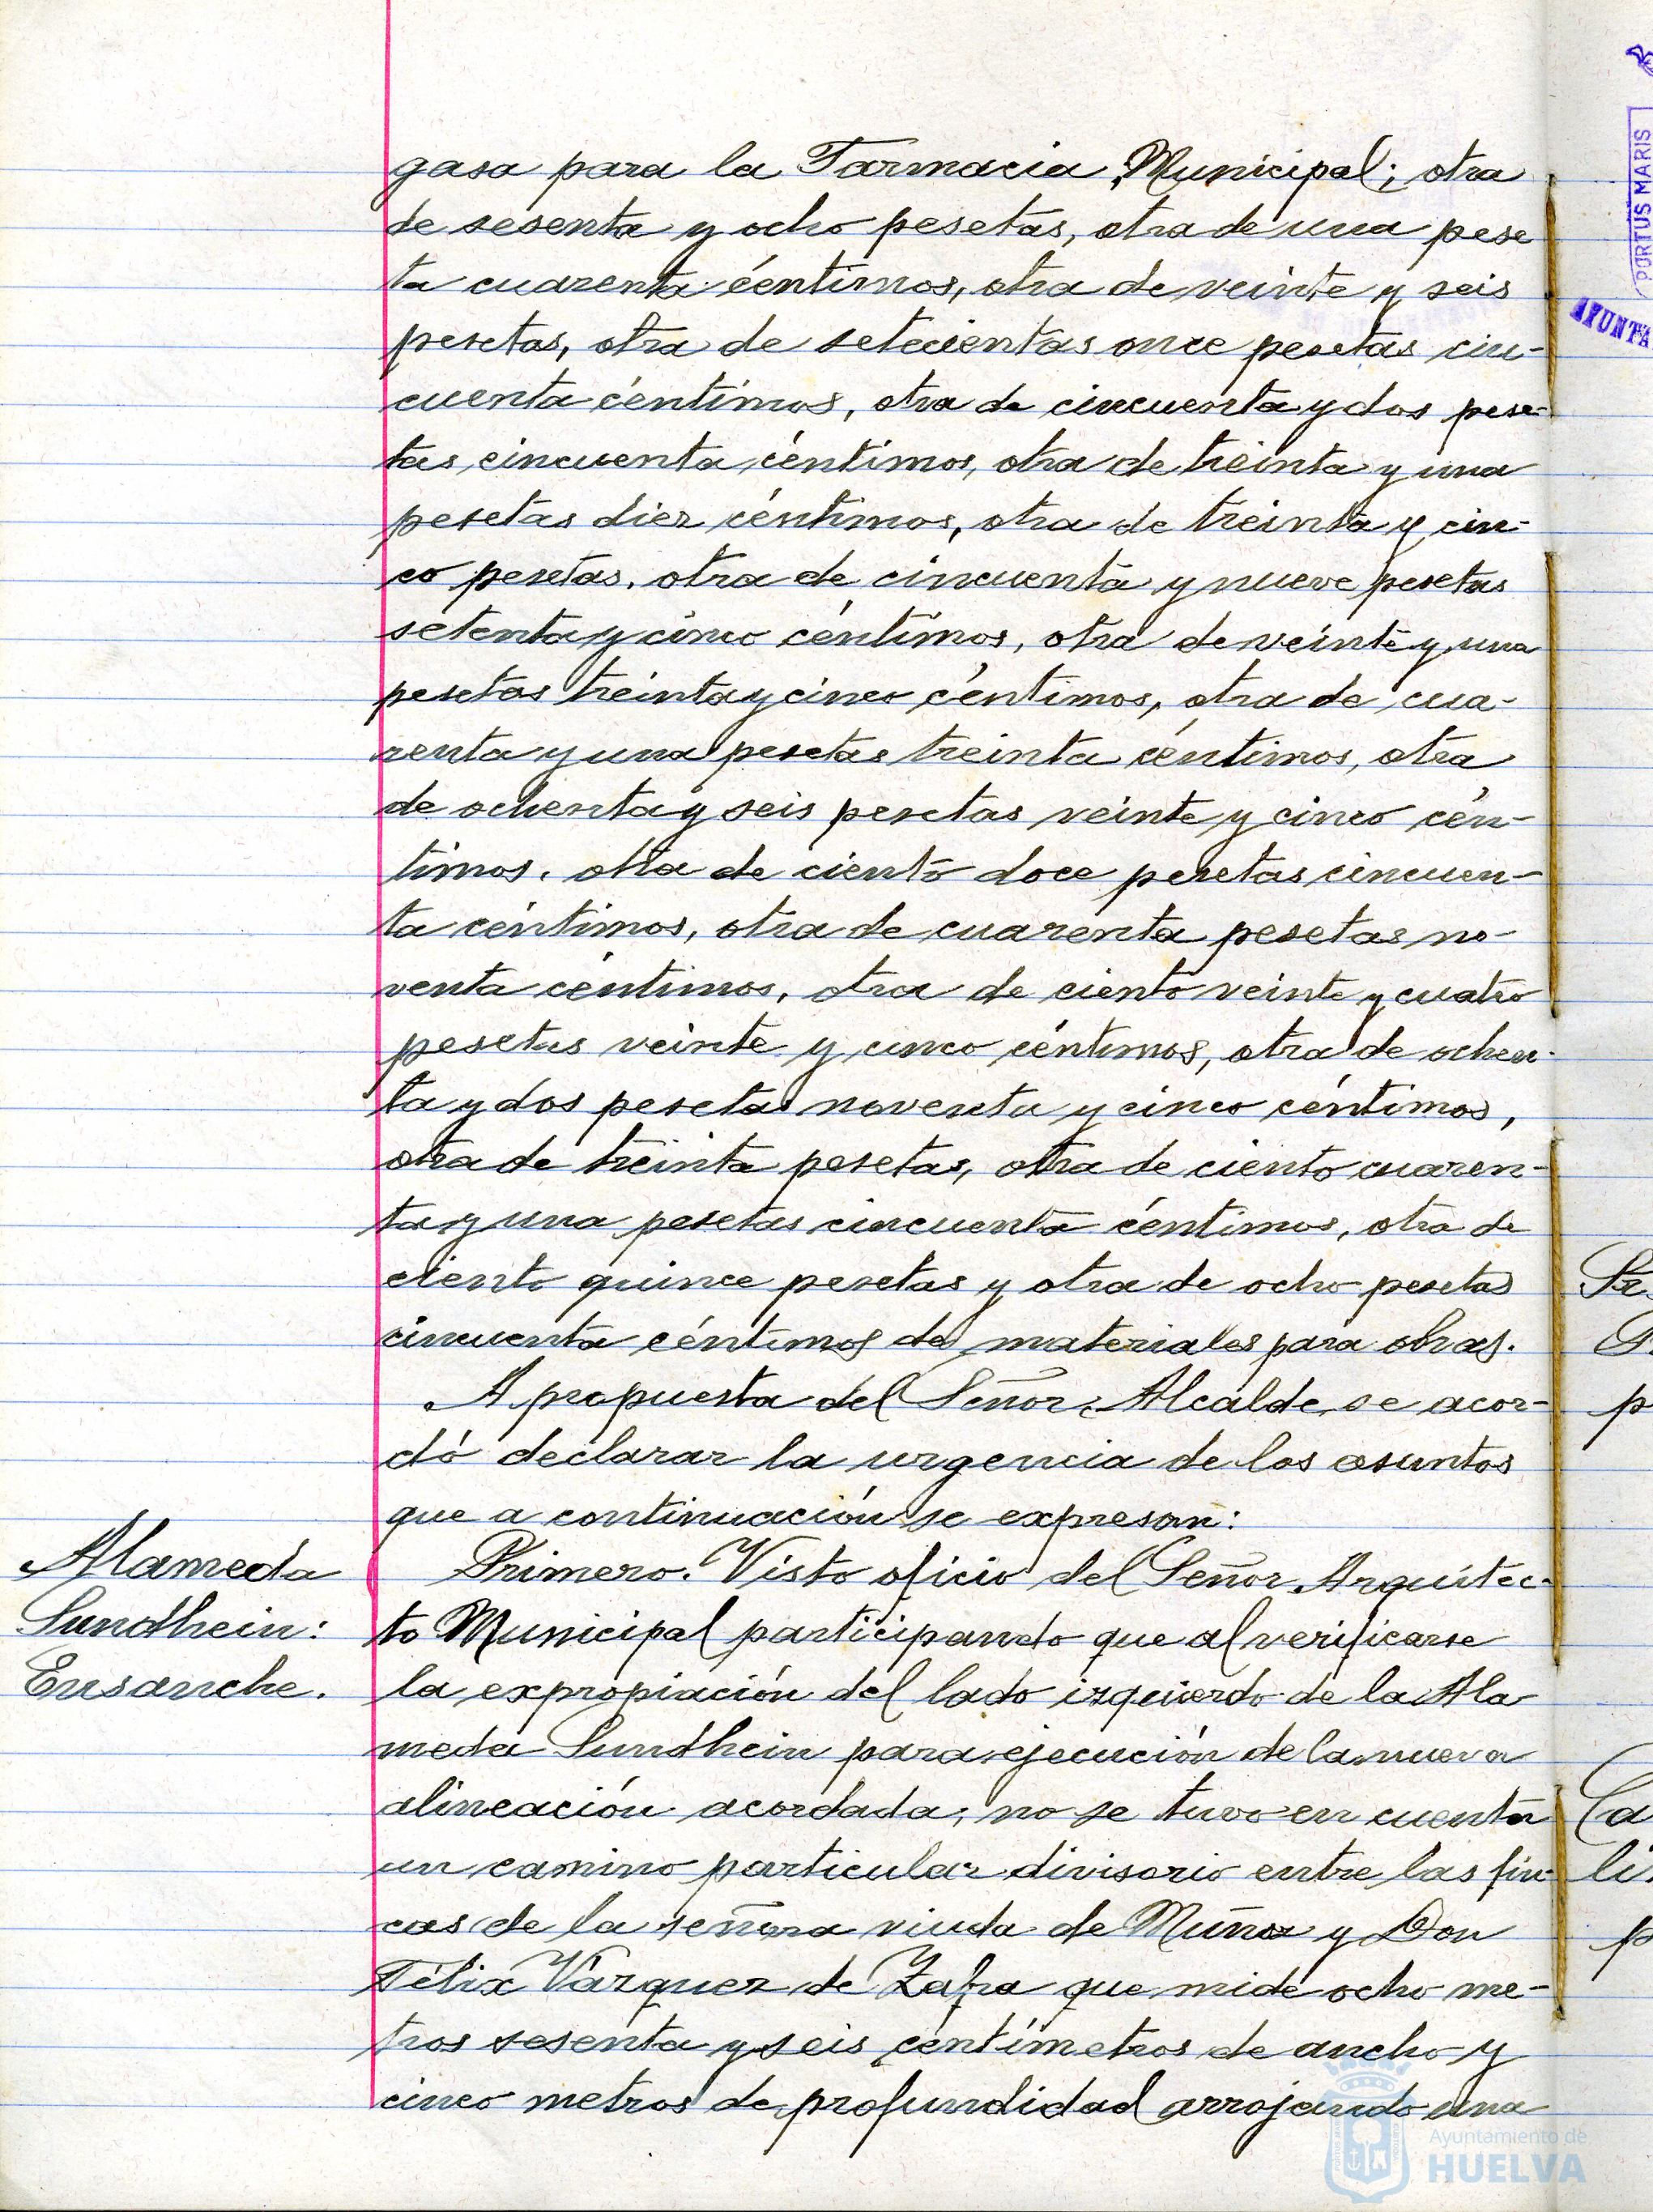 gasa para la Farmacia Municipal; otra
de sesenta y ocho pesetas, otra de una pese
ta cuarenta céntimos, otra de veinte y seis
pesetas, otra de setecientas once pesetas cin-
cuenta céntimos, otra de cincuenta y dos pese-
tas cincuenta céntimos, otra de treinta y una
pesetas diez céntimos, otra de treinta y cin-
co pesetas, otra de cincuenta y nueve pesetas
setenta y cinco céntimos, otra de veinte y una
pesetas treinta y cinco céntimos, otra de cua-
renta y una pesetas treinta céntimos, otra
de ochenta y seis pesetas veinte y cinco cén-
timos, otra de ciento doce pesetas cincuen-
ta céntimos, otra de cuarenta pesetas no-
venta céntimos, otra de ciento veinte y cuatro
pesetas veinte y cinco céntimos, otra de ochen-
ta y dos pesetas noventa y cinco céntimos,
otra de treinta pesetas, otra de ciento cuaren-
ta y una pesetas cincuenta céntimos, otra de
ciento quince pesetas y otra de ocho pesetas
cincuenta céntimos de materiales para obras.
A propuesta del Señor Alcalde, se acor-
dó declarar la urgencia de los asuntos
que a continuación se expresan:
Alameda
Sundhein:
Ensanche.
Primero. Visto oficio del Señor Arquitec-
to Municipal participando que al verificarse
la expropiación del lado izquierdo de la Ala
meda Sundhein para ejecución de la nueva
alineación acordada, no se tuvo en cuenta
un camino particular divisorio entre las fin-
cas de la señora viuda de Muñoz y Don
Félix Vázquez de Zafra que mide ocho me-
tros sesenta y seis céntímetros de ancho y
cinco metros de profundidad arrojando una
PORTUS MARIS
AYUNTA
Ayuntamiento de
HUELVA